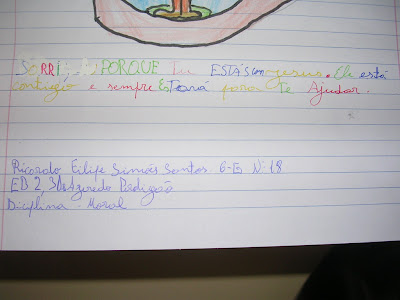 SORRI, PORQUE tu ESTÁS com Jesus. Ele está
contigo e sempre EsTará para Te Ajudar.
Ricardo Filipe Simões Santos 6-E Nº18
EB 2,3 Azeredo Perdigão
Diciplina - Moral